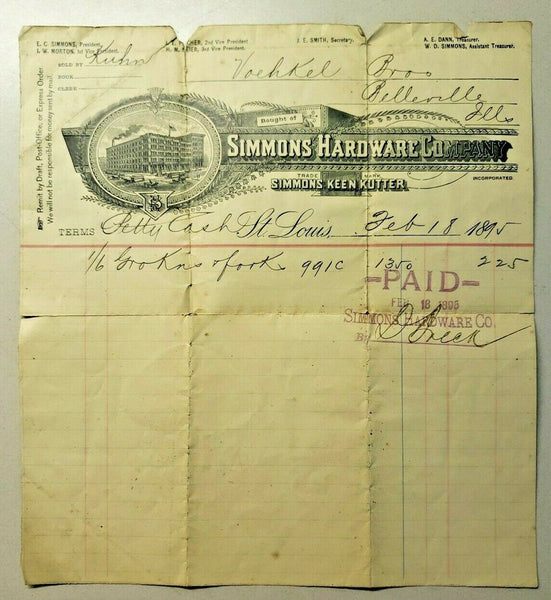 E. C. SIMMONS, President.
I. W. MORTON, 1st Vice President.
2nd Vice President
H. M. MEIER, 3rd Vice President.
J. E. SMITH, Secretary.
A. E. DANN, Treasurer.
W. D. SIMMONS, Assistant Treasurer.
SOLD BY Kuhn
BOOK
CLERK
Voehkel Bros
Belleville
Ills
Remit by Draft, Post-Office, or Express Order.
We will not be responsible for money sent by mail.
Bought of
SIMMONS HARDWARE COMPANY
INCORPORATED.
TRADE MARK
SIMMONS KEEN KUTTER.
TERMS Petty Cash St. Louis, Feb 18 1895
1/6 Gro Kns & forks 991C 1350 225
-PAID-
FEB 18 1895
SIMMONS HARDWARE CO.
By